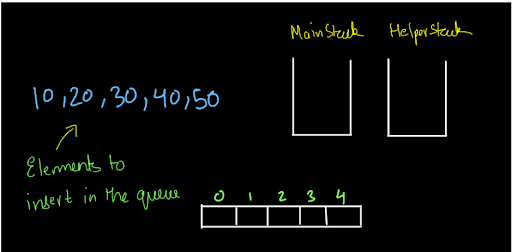 MainStack HelperStack
10,20,30,40,50
Elements to
insert in the queue
0 1 2 3 4